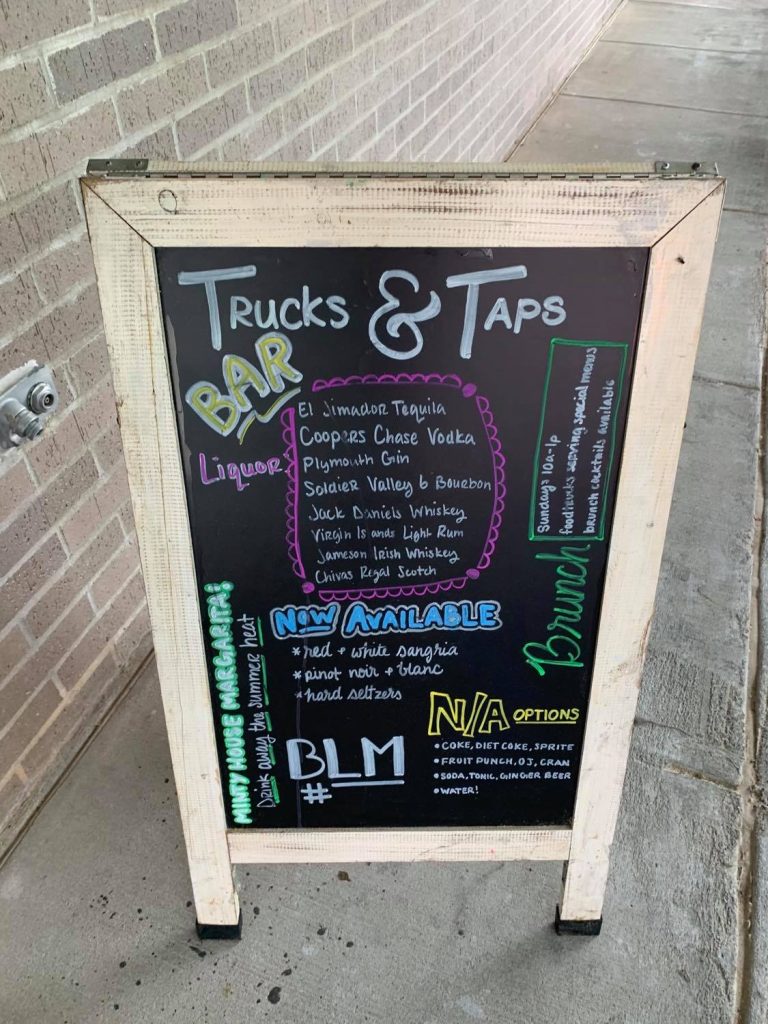 TRUCKS & TAPS
BAR
Liquor
El Jimador Tequila
Coopers Chase Vodka
Plymouth Gin
Soldier Valley 6 Bourbon
Jack Daniels Whiskey
Virgin Is ands Light Rum
Jameson Irish Whiskey
Chivas Regal Scotch
Brunch
Sundays 10a-1p
food trucks serving special menus
brunch cocktails available
NOW AVAILABLE
*red + white sangria
*pinot noir + blanc
*hard seltzers
MINTY HOUSE MARGARITA:
Drink away the summer heat
#BLM
N/A OPTIONS
• COKE, DIET COKE, SPRITE
• FRUIT PUNCH, OJ, CRAN
• SODA, TONIC, GINGER BEER
• WATER!